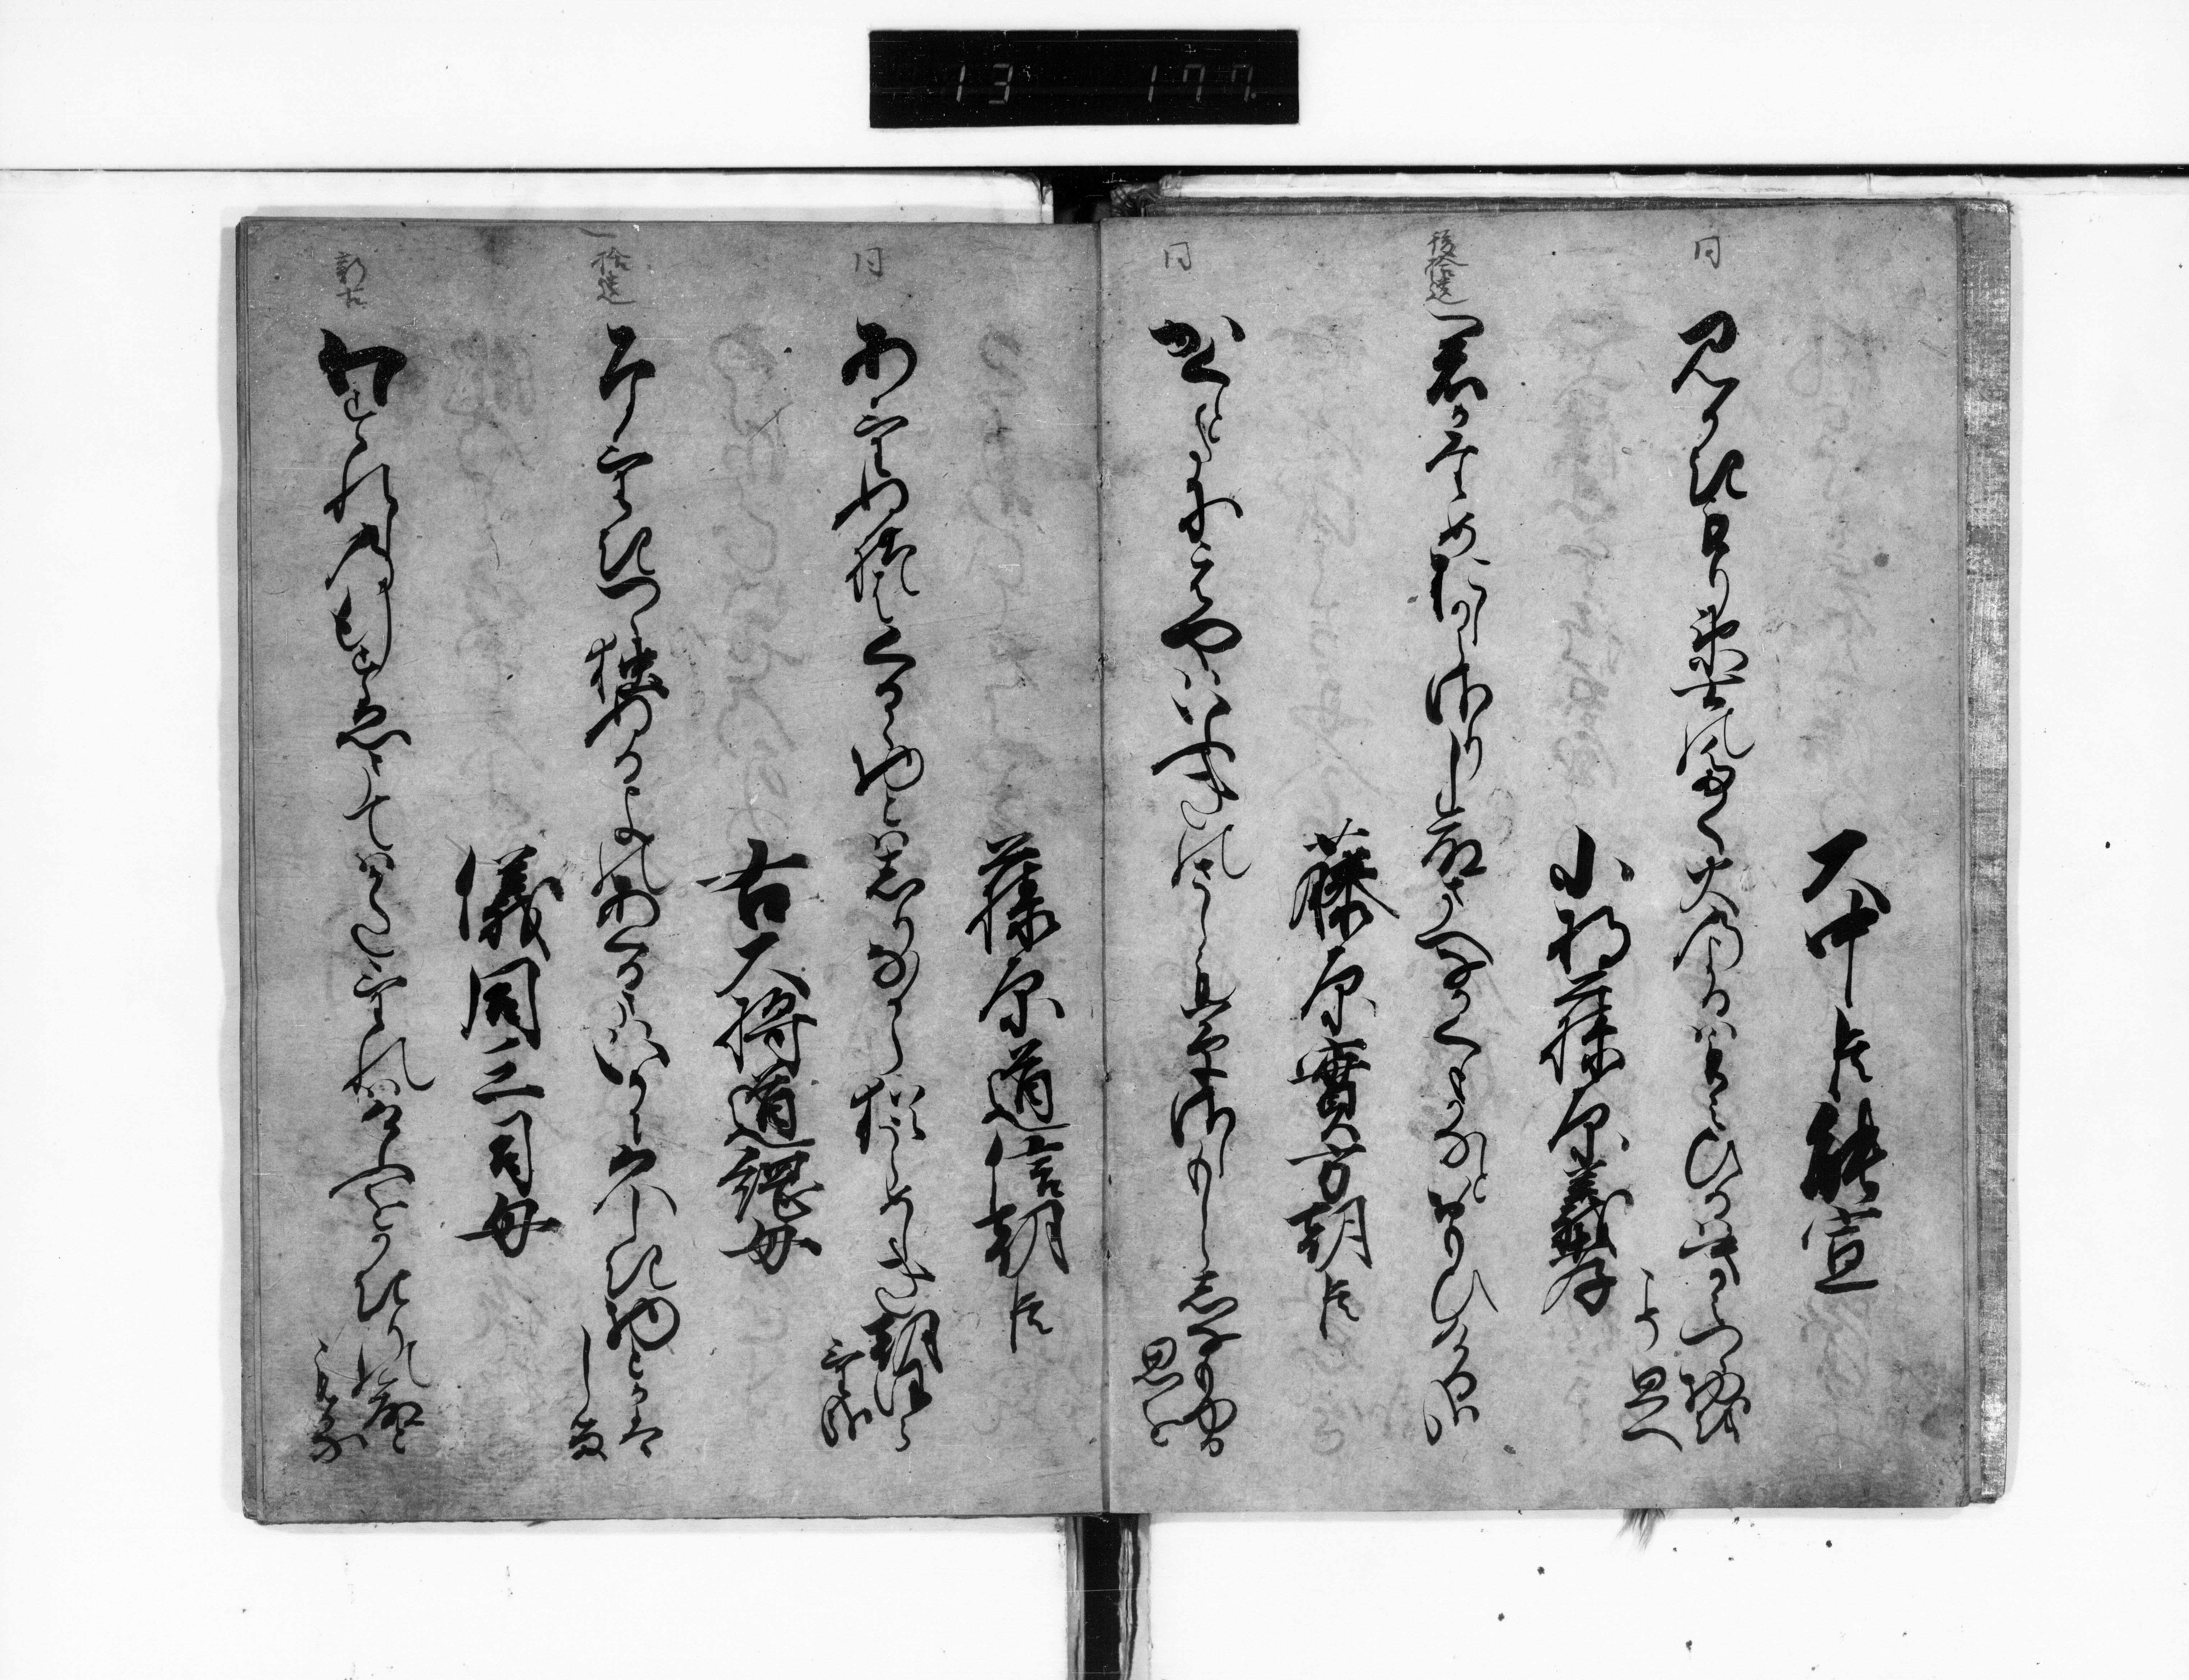 13 177
大中臣能宣
同
みかき守衛士のたく火のよるはもえひるはきえつゝ物を
こそ思へ
少将藤原義孝
後拾遺
君かためおしからさりし命さへなかくもかなとおもひけるかな
藤原實方朝臣
同
かくとたにえやはいふきのさしも草さしもしらしなもゆる
思ひを
藤原道信朝臣
同
あけぬれはくるゝ物とはしりなから猶うらめしき朝ほら
け哉
右大将道綱母
拾遺
なけきつゝ独ぬるよのあくるまはいかに久しき物とかは
しる
儀同三司母
新古
わすれしの行すゑまてはかたけれはけふをかきりの命と
もかな